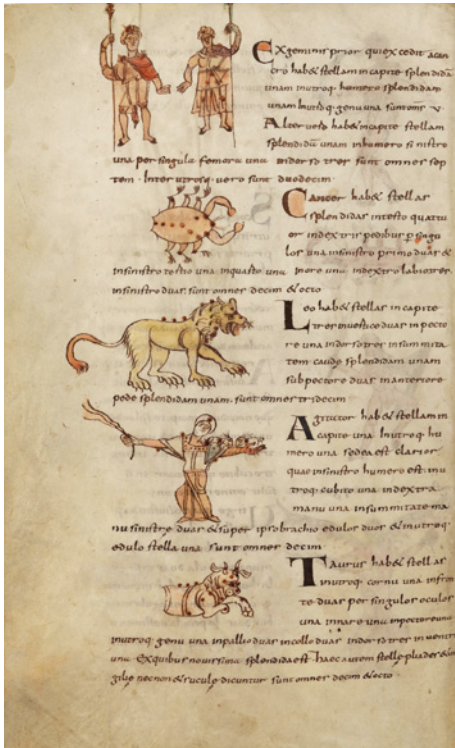 Exgeminis prior quiexcedit acan
cro hab& stellam in capite splendidā
unam inutroq; humero splendidam
unam Inutisq; genu una suntomnes v.
Alter vero hab& incapite stellam
splendidā unam inhumero sinistro
una per singula femora unā indorso tres sunt omnes sep
tem. Inter utrosq; vero sunt duodecim.
Cancer hab& stellas
splendidas intesto quattu
or indextris pedibus p singu
los una insinistro primo duas &
insinistro testio una inquarto unā inore unā indextro labio tres
insinistro duas. sunt omnes decim & octo
Leo hab& stellas in capite
tres inuertice duas inpecto
re una indorso tres insummita
tem caude splendidam unam
subpectore duas inanteriore
pede splendidam unam. sunt omnes tridecim
Agitator hab& stellam in
capite una Inutroq; hu
mero una sed ea est clarior
quae insinistro humero est. inu
troq; cubito una indextra
manu una insummitate ma
nu sinistre duas & super ipso brachio edulos duos & inutroq;
edulo stella una sunt omnes decim.
Taurus hab& stellas
inutroq; cornu una infron
te duas per singulos oculos
una innare unā inpectore una
inutroq; genu una inpallio duas incollo duas indorso tres inuentre
unā Exquibus nouissima splendida est. haec autem stelle pliades
necnon & sucule dicuntur sunt omnes decim & octo.